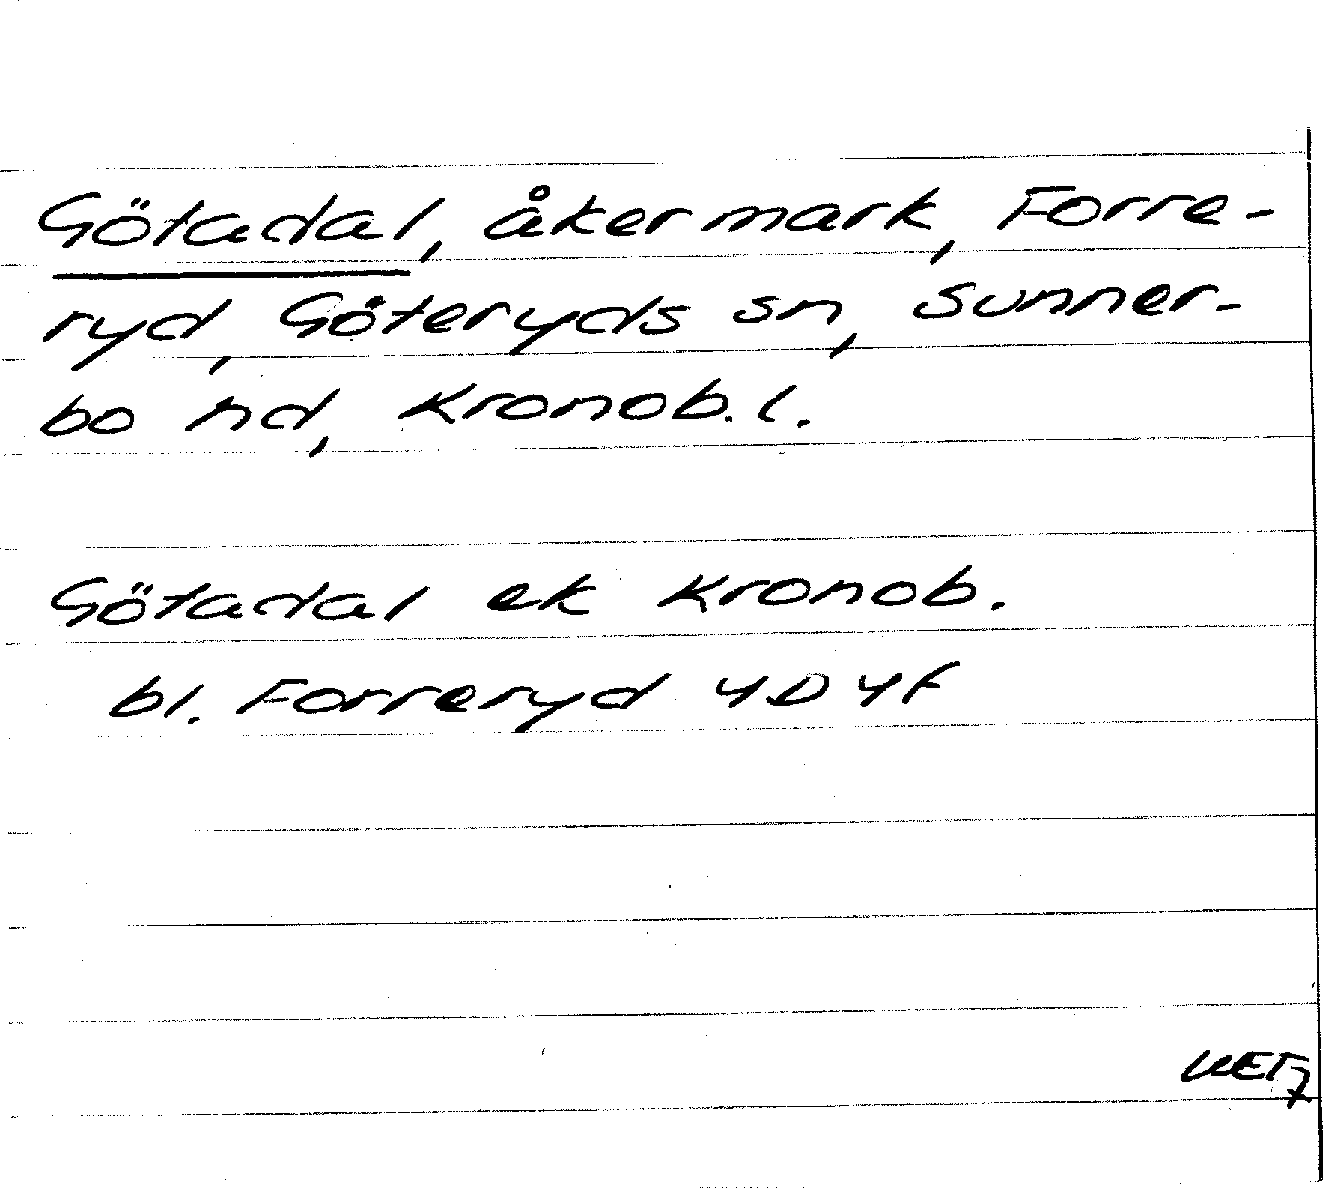 Götadal, åkermark, Forre-
ryd, Göteryds sn, Sunner-
bo hd, Kronob. l.
Götadal ek Kronob.
bl. Forreryd 4D4f